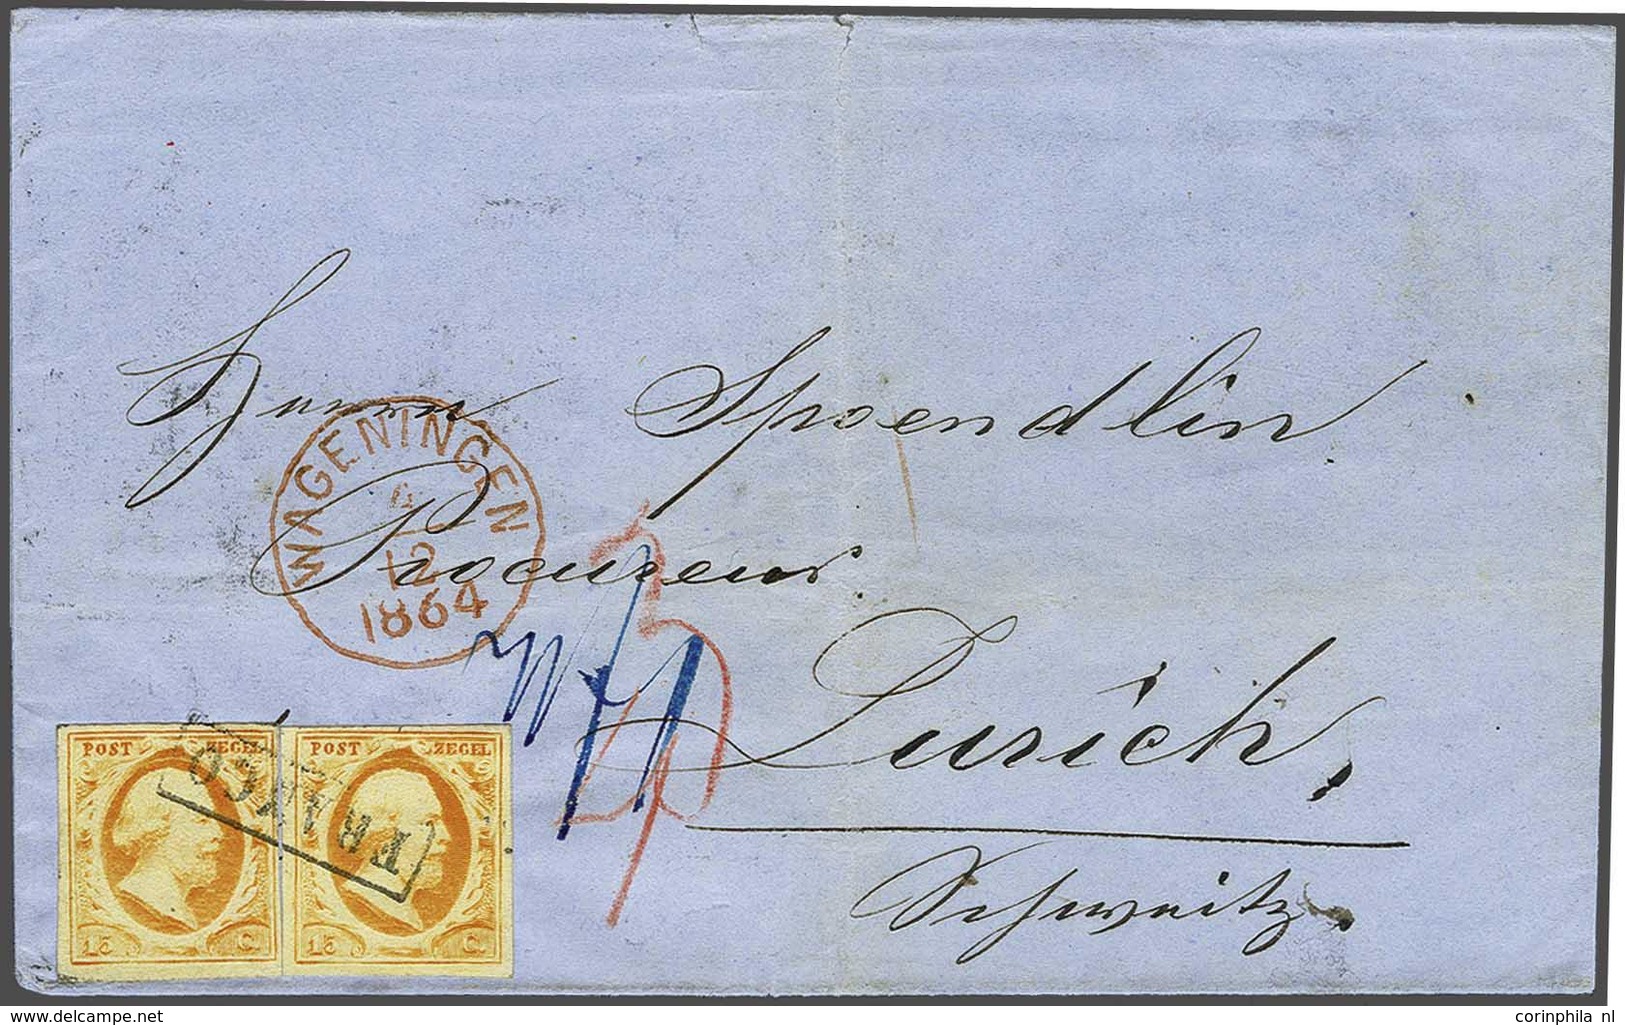 Herrn Spoendlin
Procureur
Zurich,
Schweitz.
WAGENINGEN
12
1864
POST ZEGEL POST ZEGEL
FRANCO
15 C. 15 C.
www.delcampe.net
corinphila nl